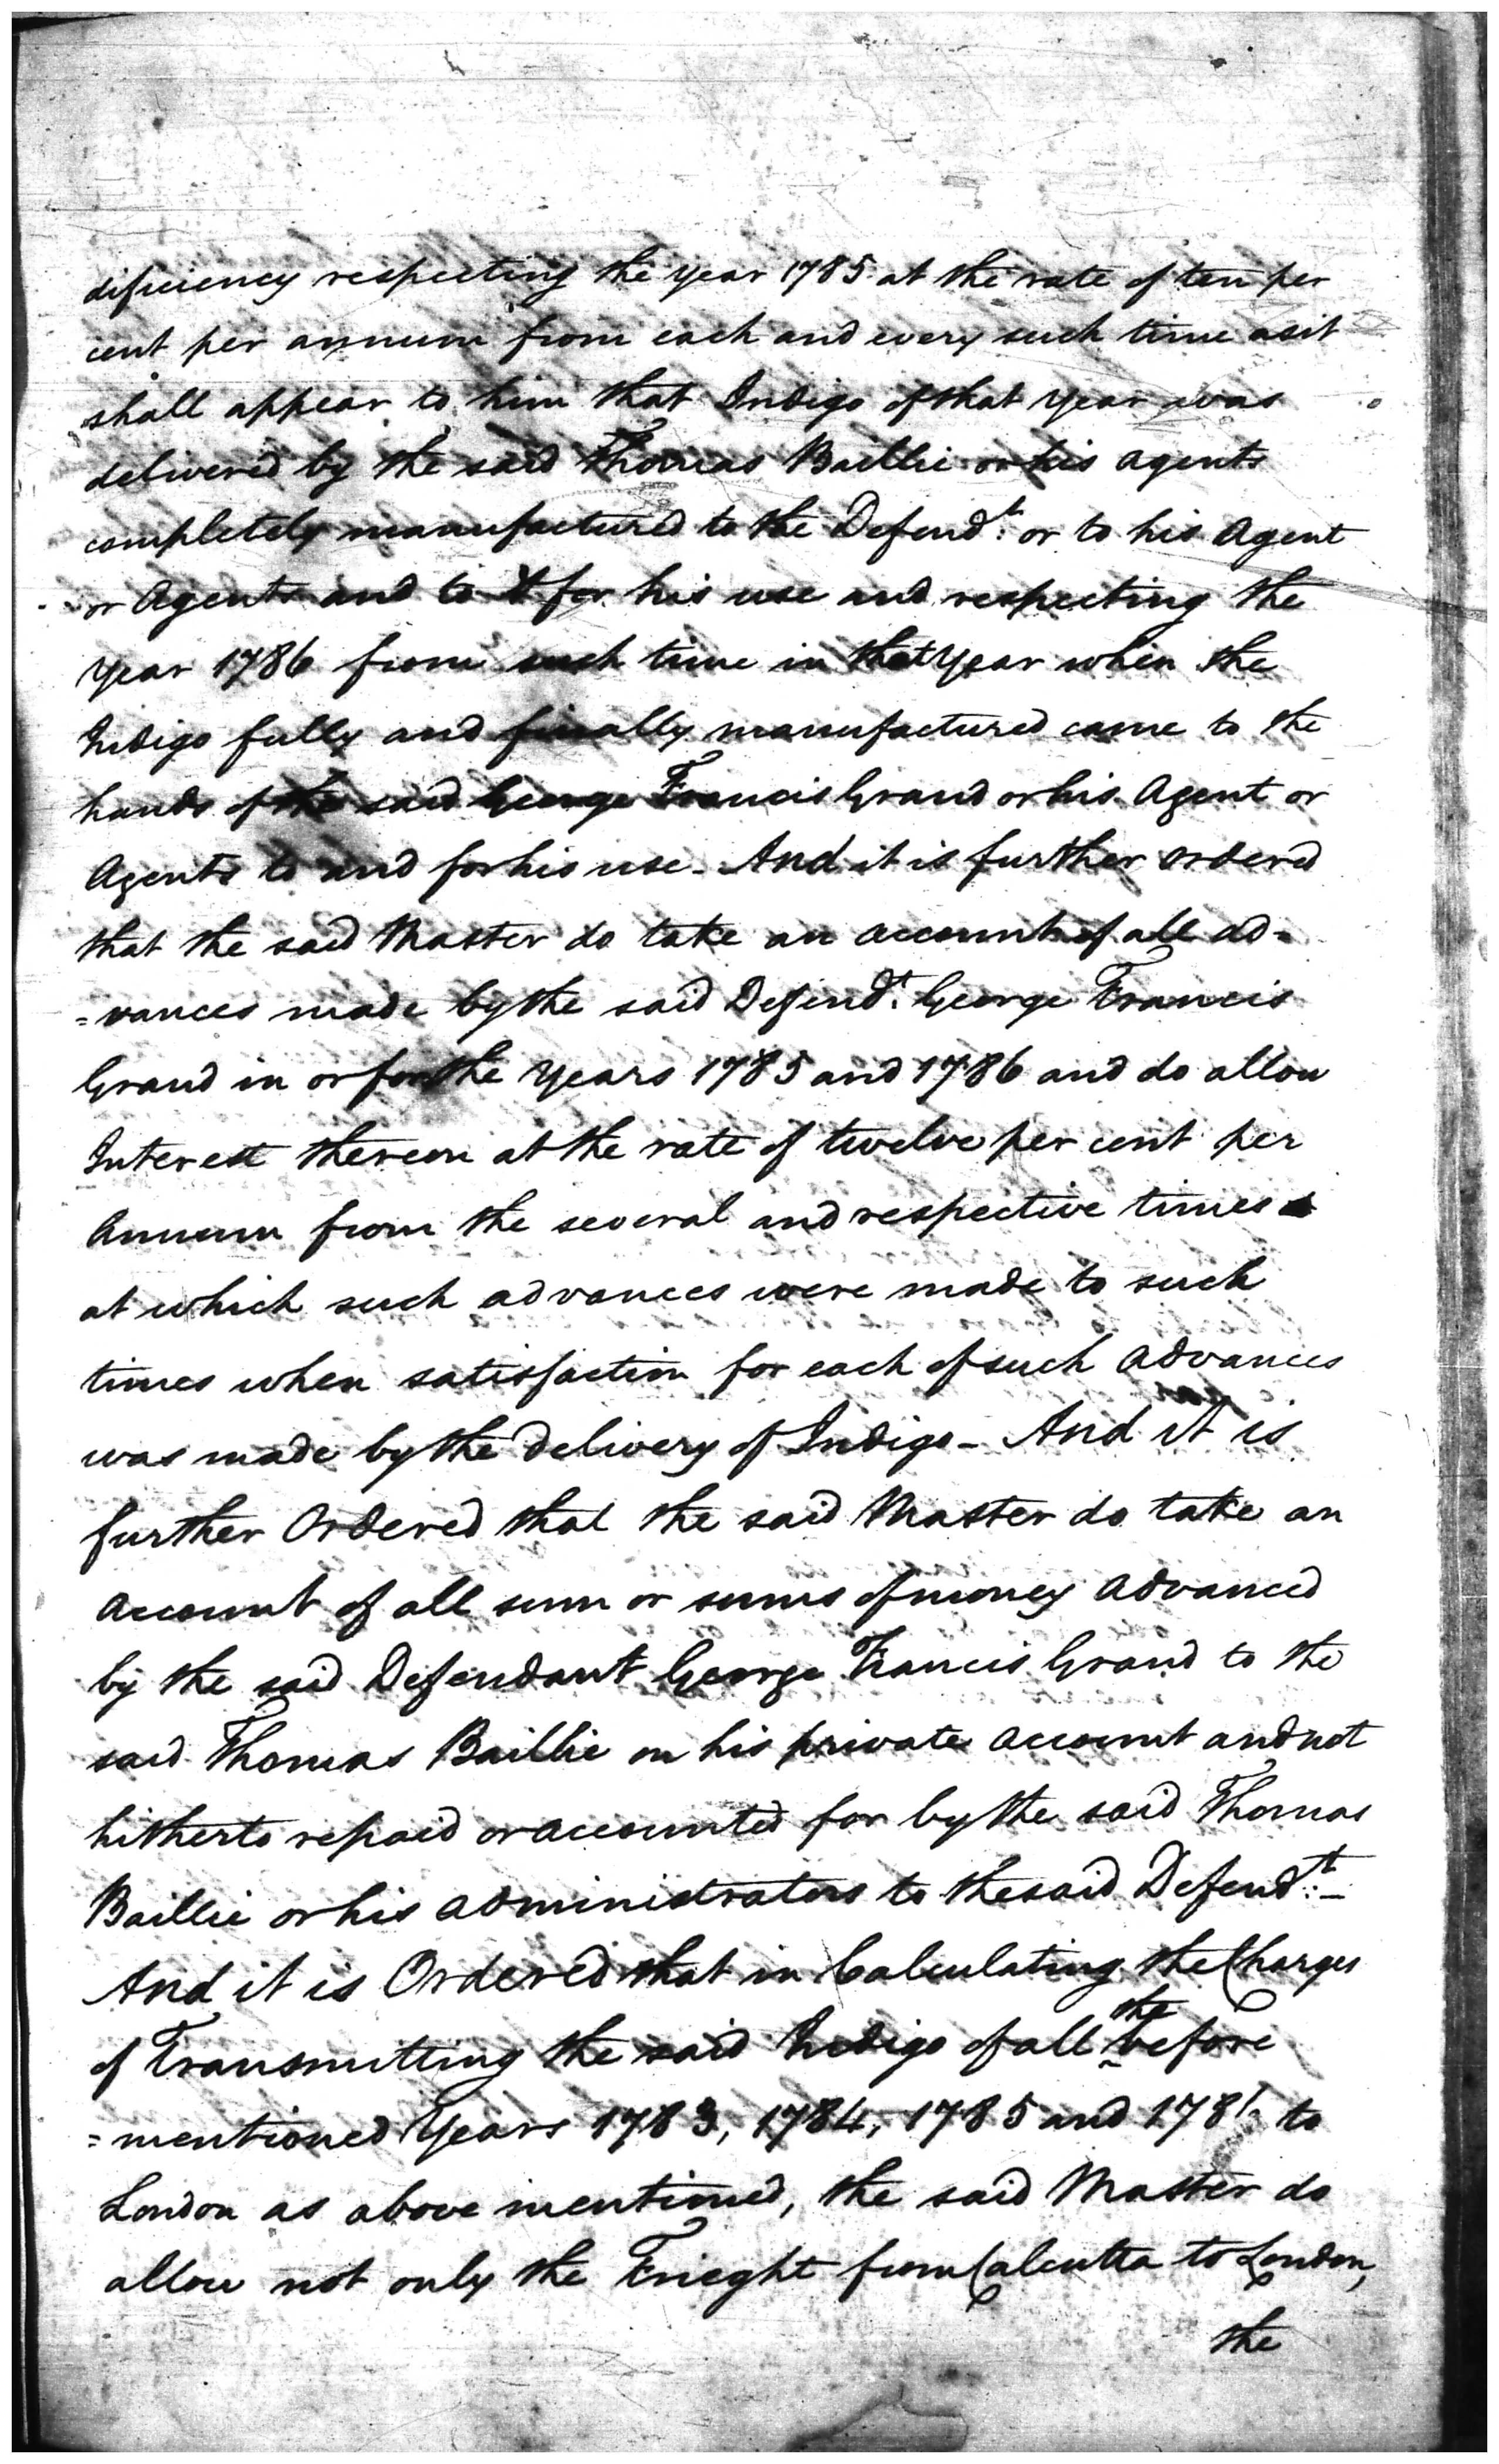 dificiency respecting the year 1785 at the rate of ten per
cent per annum from each and every such time as it
shall appear to him that Indigo of that year was
delivered by the said Thomas Baillie or his agents
completely manufactured to the Defend.t or to his Agent
or Agents and to & for his use and respecting the
Year 1786 from such time in that Year when the
Indigo fully and finally manufactured came to the
hands of the said George Francis Grand or his Agent or
Agents to and for his use - And it is further ordered
that the said Master do take an account of all ad=
=vances made by the said Defend.t George Francis
Grand in or for the Years 1785 and 1786 and do allow
Interest thereon at the rate of twelve per cent per
Annum from the several and respective times
at which such advances were made to such
times when satisfaction for each of such advances
was made by the delivery of Indigo - And it is
further Ordered that the said Master do take an
account of all sum or sums of money advanced
by the said Defendant George Francis Grand to the
said Thomas Baillie on his private account and not
hitherto repaid or accounted for by the said Thomas
Baillie or his administrators to the said Defend.t -
And it is Ordered that in Calculating the Charges
of Transmitting the said Indigo of all the before
=mentioned Years 1783, 1784, 1785 and 1786 to
London as above mentioned, the said Master do
allow not only the Frieght from Calcutta to London,
the